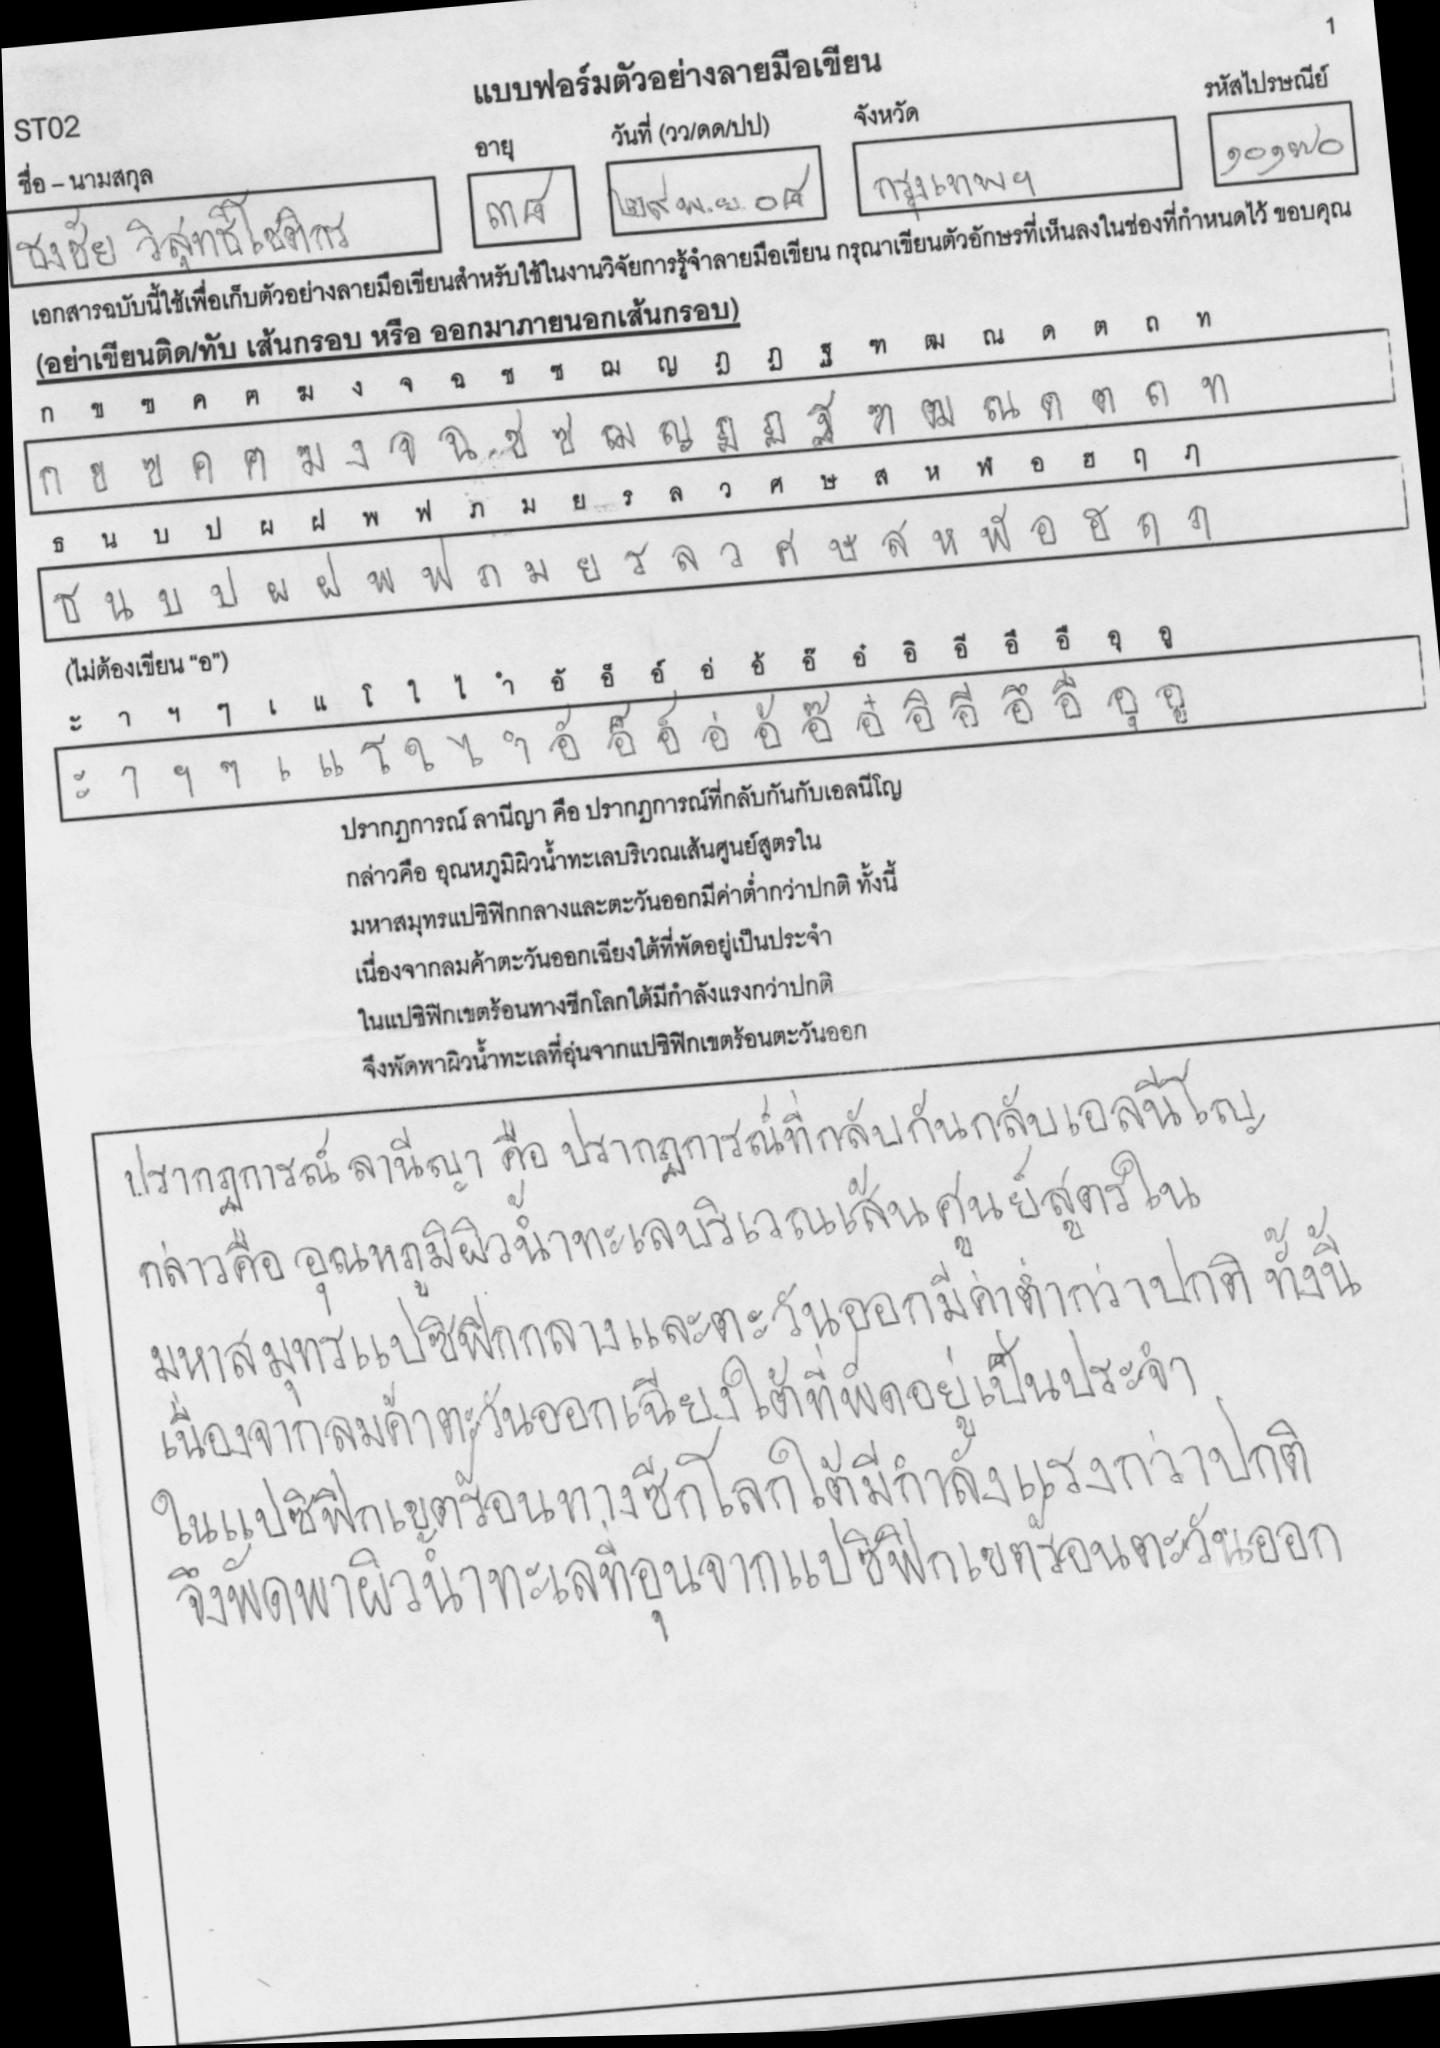 1
แบบฟอร์มตัวอย่างลายมือเขียน
ST02
ชื่อ – นามสกุล อายุ วันที่ (วว/ดด/ปป) จังหวัด รหัสไปรษณีย์
ธงชัย วิสุทธิ์โชติกร ๓๘ ๒๙ พ.ย. ๐๘ กรุงเทพฯ ๑๐๑๗๐
เอกสารฉบับนี้ใช้เพื่อเก็บตัวอย่างลายมือเขียนสำหรับใช้ในงานวิจัยการรู้จำลายมือเขียน กรุณาเขียนตัวอักษรที่เห็นลงในช่องที่กำหนดไว้ ขอบคุณ
(อย่าเขียนติด/ทับ เส้นกรอบ หรือ ออกมาภายนอกเส้นกรอบ)
ก ข ฃ ค ฅ ฆ ง จ ฉ ช ซ ฌ ญ ฎ ฏ ฐ ฑ ฒ ณ ด ต ถ ท
ก ข ฃ ค ฅ ฆ ง จ ฉ ช ซ ฌ ญ ฎ ฏ ฐ ฑ ฒ ณ ด ต ถ ท
ธ น บ ป ผ ฝ พ ฟ ภ ม ย ร ล ว ศ ษ ส ห ฬ อ ฮ ฤ ฦ
ธ น บ ป ผ ฝ พ ฟ ภ ม ย ร ล ว ศ ษ ส ห ฬ อ ฮ ฤ ฦ
(ไม่ต้องเขียน “อ”)
ะ า ฯ ๆ เ แ โ ใ ไ ำ อั อ็ อ์ อ่ อ้ อ๊ อ๋ อิ อี อึ อื อุ อู
ะ า ฯ ๆ เ แ โ ใ ไ ำ อั อ็ อ์ อ่ อ้ อ๊ อ๋ อิ อี อึ อื อุ อู
ปรากฏการณ์ ลานีญา คือ ปรากฏการณ์ที่กลับกันกับเอลนีโญ
กล่าวคือ อุณหภูมิผิวน้ำทะเลบริเวณเส้นศูนย์สูตรใน
มหาสมุทรแปซิฟิกกลางและตะวันออกมีค่าต่ำกว่าปกติ ทั้งนี้
เนื่องจากลมค้าตะวันออกเฉียงใต้ที่พัดอยู่เป็นประจำ
ในแปซิฟิกเขตร้อนทางซีกโลกใต้มีกำลังแรงกว่าปกติ
จึงพัดพาผิวน้ำทะเลที่อุ่นจากแปซิฟิกเขตร้อนตะวันออก
ปรากฏการณ์ ลานีญา คือ ปรากฏการณ์ที่กลับกันกลับเอลนีโญ
กล่าวคือ อุณหภูมิผิวน้ำทะเลบริเวณเส้นศูนย์สูตรใน
มหาสมุทรแปซิฟิกกลางและตะวันออกมีค่าต่ำกว่าปกติ ทั้งนี้
เนื่องจากลมค้าตะวันออกเฉียงใต้ที่พัดอยู่เป็นประจำ
ในแปซิฟิกเขตร้อนทางซีกโลกใต้มีกำลังแรงกว่าปกติ
จึงพัดพาผิวน้ำทะเลที่อุ่นจากแปซิฟิกเขตร้อนตะวันออก